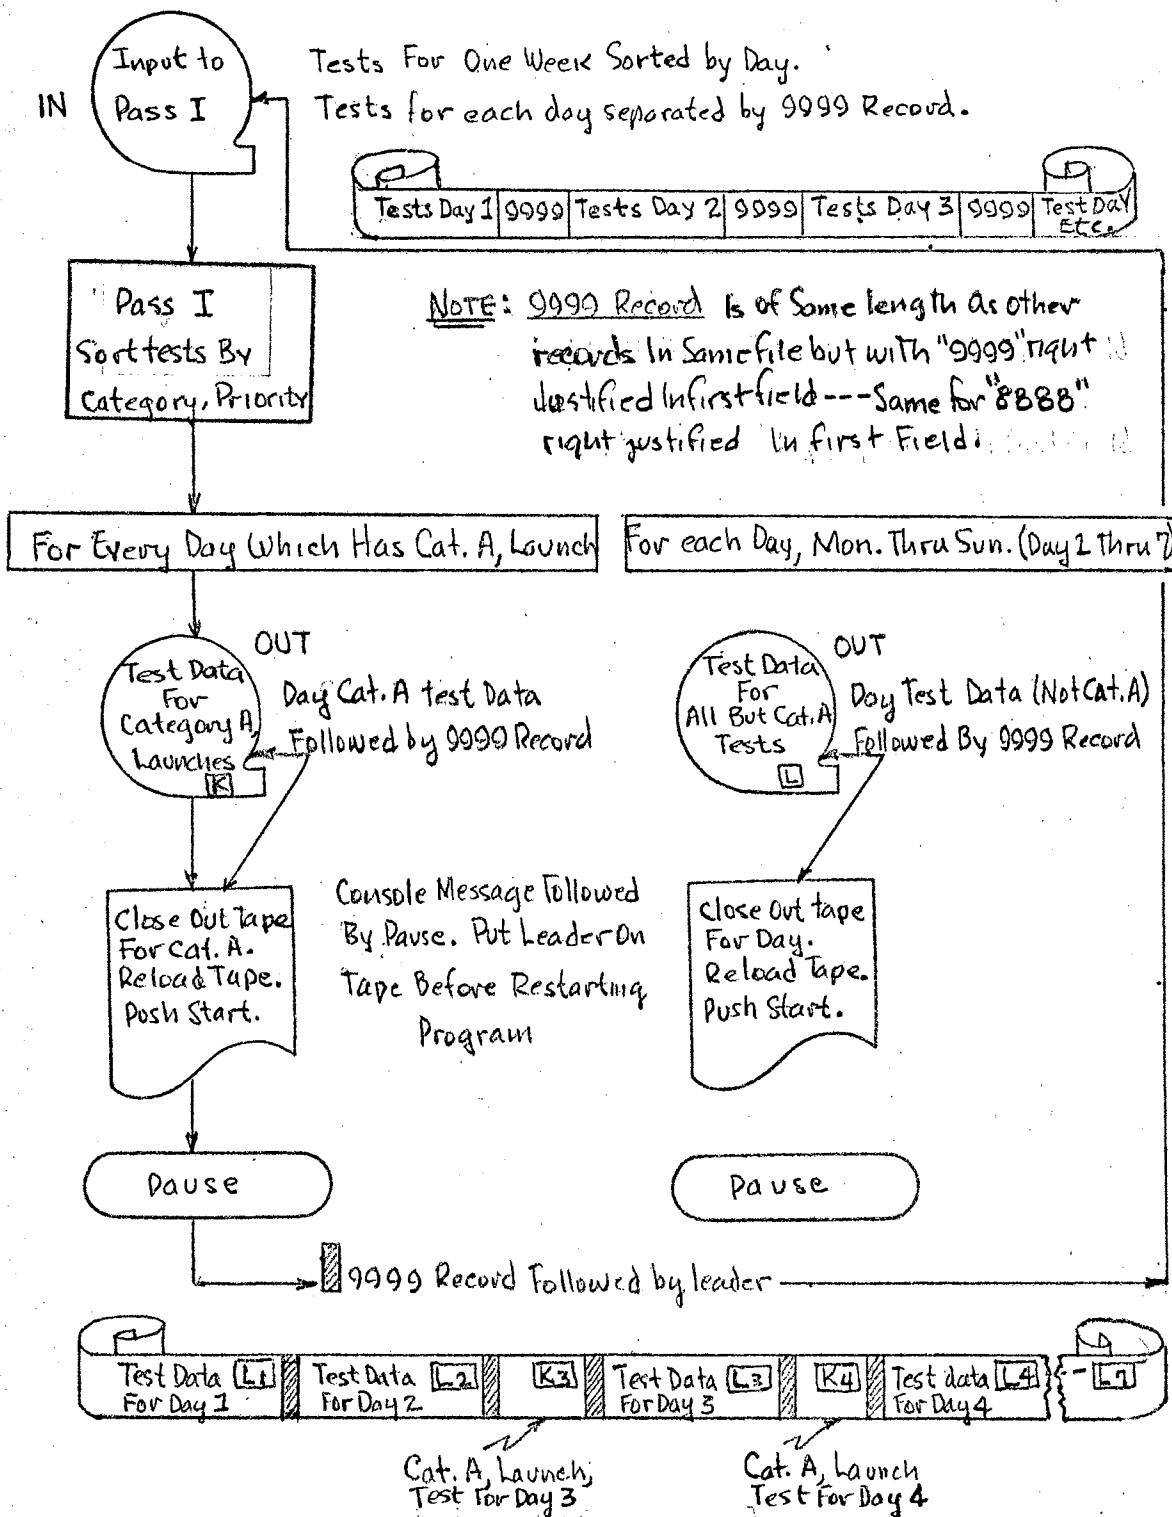 Input to
Pass I
IN
Tests For One Week Sorted by Day.
Tests for each day separated by 9999 Record.
Tests Day 1 9999 Tests Day 2 9999 Tests Day 3 9999 Test Day
Etc.
Pass I
Sort tests By
Category, Priority
NOTE: 9999 Record Is of Same length as other
records In Same file but with "9999" right
Justified In first field --- Same for "8888"
right justified In first Field.
For Every Day Which Has Cat. A, Launch
For each Day, Mon. Thru Sun. (Day 1 Thru 7)
OUT
Test Data
For
Category A,
Launches
K
Day Cat. A test Data
Followed by 9999 Record
OUT
Test Data
For
All But Cat. A
Tests
L
Day Test Data (Not Cat. A)
Followed By 9999 Record
Close Out Tape
For Cat. A.
Reload Tape.
Push Start.
Console Message Followed
By Pause. Put Leader On
Tape Before Restarting
Program
Close Out tape
For Day.
Reload Tape.
Push Start.
Pause
Pause
9999 Record Followed by leader
Test Data L1
For Day 1
Test Data L2
For Day 2
K3
Test Data L3
For Day 3
K4
Test data L4
For Day 4
-- L7
Cat. A, Launch,
Test For Day 3
Cat. A, Launch
Test For Day 4